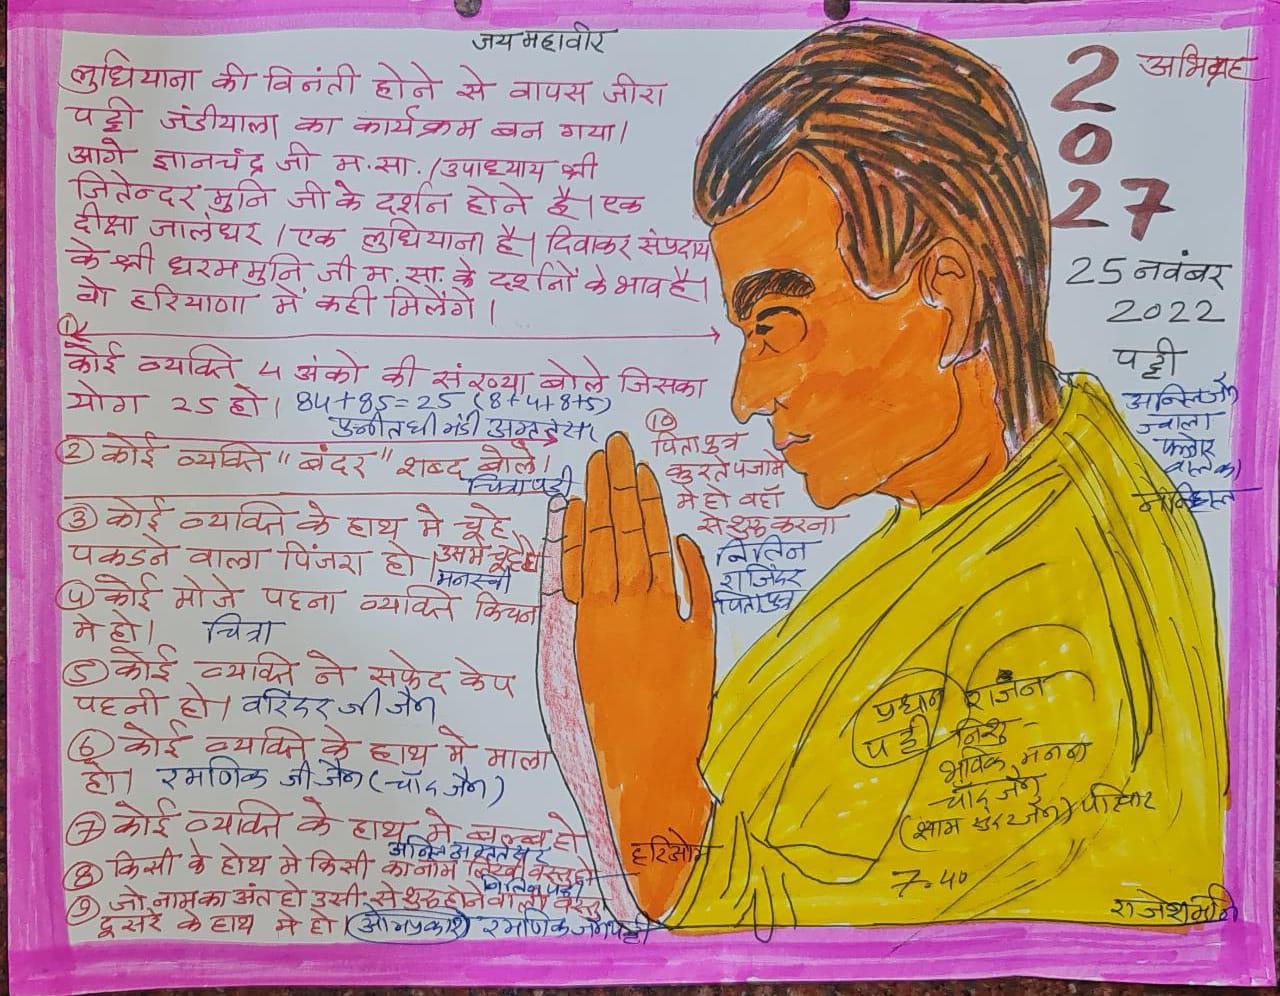 जय महावीर
लुधियाना की विनंती होने से वापस जीरा
पट्टी जंडीयाला का कार्यक्रम बन गया।
आगे ज्ञानचंद्र जी म.सा. / उपाध्याय श्री
जितेन्दर मुनि जी के दर्शन होने है। एक
दीक्षा जालंधर / एक लुधियाना है। दिवाकर संप्रदाय
के श्री धरम मुनि जी म.सा. के दर्शनों के भाव है।
वो हरियाणा में कही मिलेंगे।
① कोई व्यक्ति 4 अंको की संख्या बोले जिसका
योग 25 हो। 84+85=25 (8+4+8+5)
② कोई व्यक्ति "बंदर" शब्द बोले।
चित्रा पट्टी
③ कोई व्यक्ति के हाथ मे चूहे
पकडने वाला पिंजरा हो।
मनस्वी
④ कोई मोजे पहना व्यक्ति किचन
मे हो। चित्रा
⑤ कोई व्यक्ति ने सफेद केप
पहनी हो। वरिंदर जी जैन
⑥ कोई व्यक्ति के हाथ मे माला
हो। रमणिक जी जैन (चाँद जैन)
⑦ कोई व्यक्ति के हाथ मे बल्ब हो
⑧ किसी के हाथ मे किसी का नाम लिखी वस्तु हो
⑨ जो नाम का अंत हो उसी से शुरू होने वाली वस्तु
दूसरे के हाथ मे हो। (ओमप्रकाश) रमणिक जैन पट्टी
⑩
पिता पुत्र
कुरते पजामे
मे हो वहाँ
से शुरू करना
नितिन
राजिंदर
पिता पुत्र
2 अभिग्रह
0
27
25 नवंबर
2022
पट्टी
प्रधान राजन
पट्टी
चाँद जैन
परिवार
हरिओम
7.40
राजेश मुनि